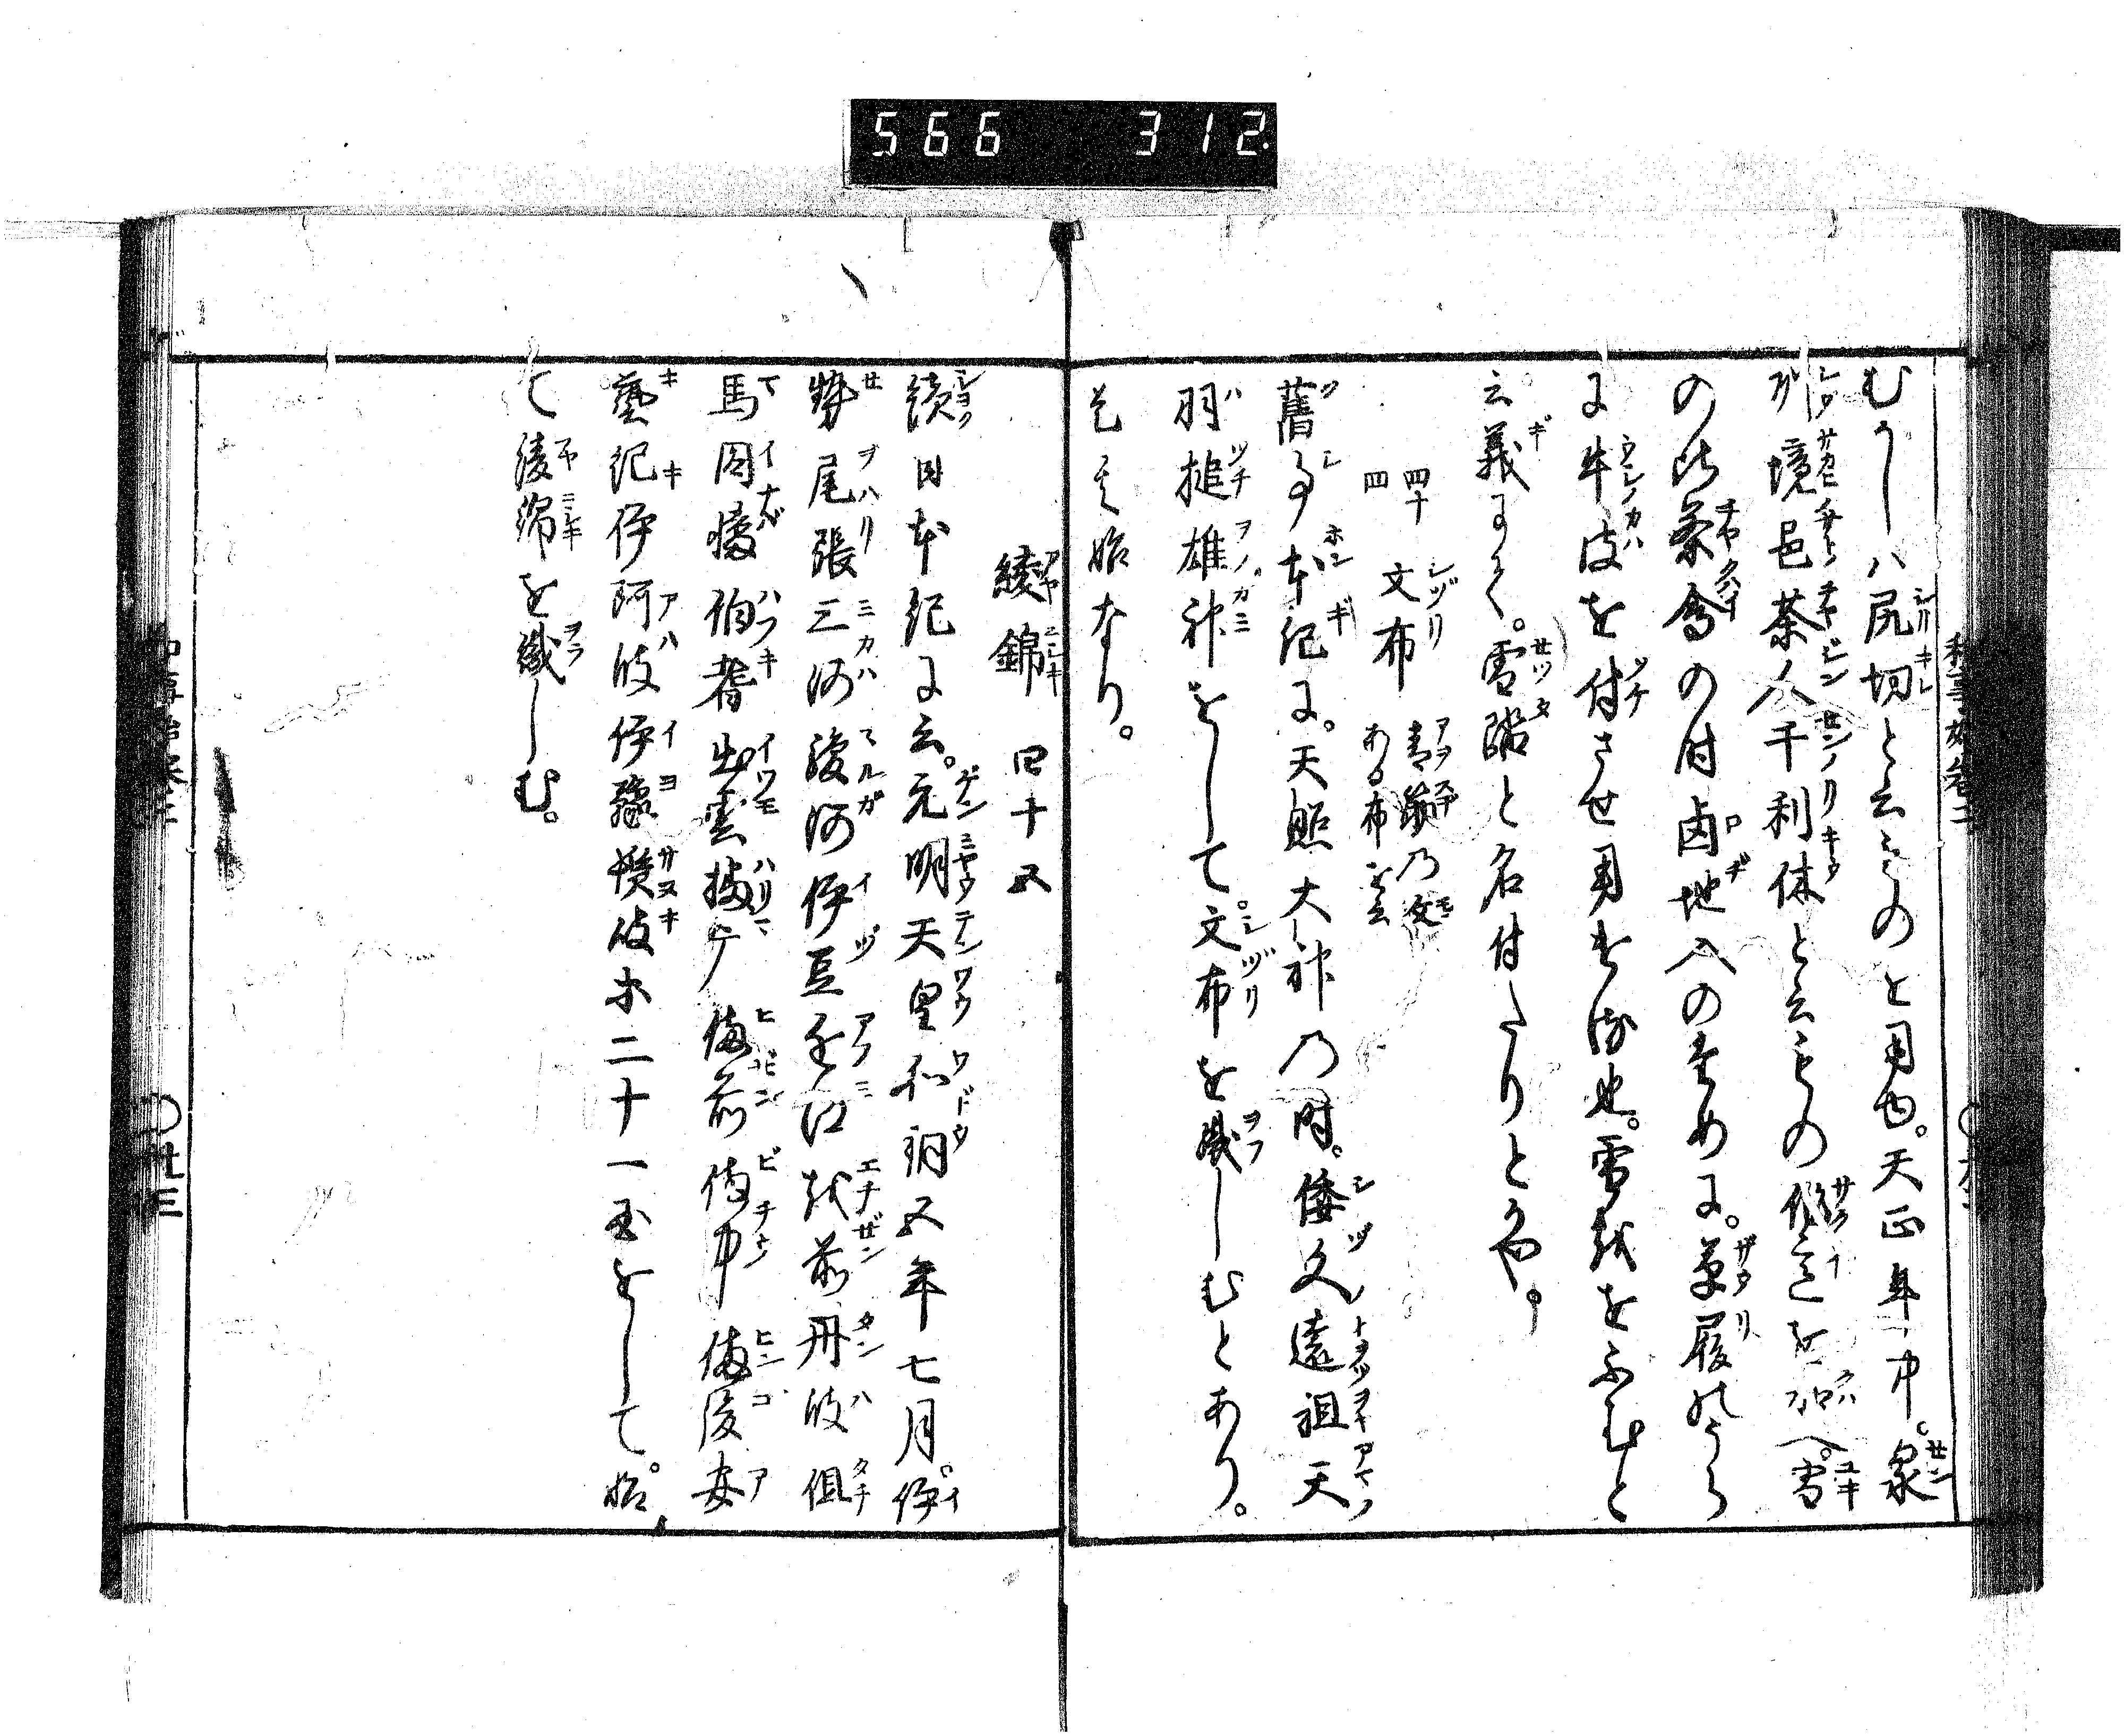 566 312
むかしハ尻切と云ものを用ゆ。天正年中。泉
州境邑茶人千利休と云もの作意を加へ。雪
の比茶會の付歯地入のために。草履のうら
に牛皮を付させ用ける也。雪跡をふむと
云義にて。雪踏と名付たりとかや。
四十四 文布 青筋乃文ある布を云
舊事本紀に。天照大神乃時。倭文遠祖天
羽槌雄神をして。文布を織しむとあり。
是其始なり。
綾錦 四十五
續日本紀に云。元明天皇和銅五年七月。伊
勢尾張三河駿河伊豆近江越前丹波但
馬因幡伯耆出雲播广備前備中備後安
藝紀伊阿波伊豫讃岐ホ二十一国をして。始
て綾錦を織しむ。